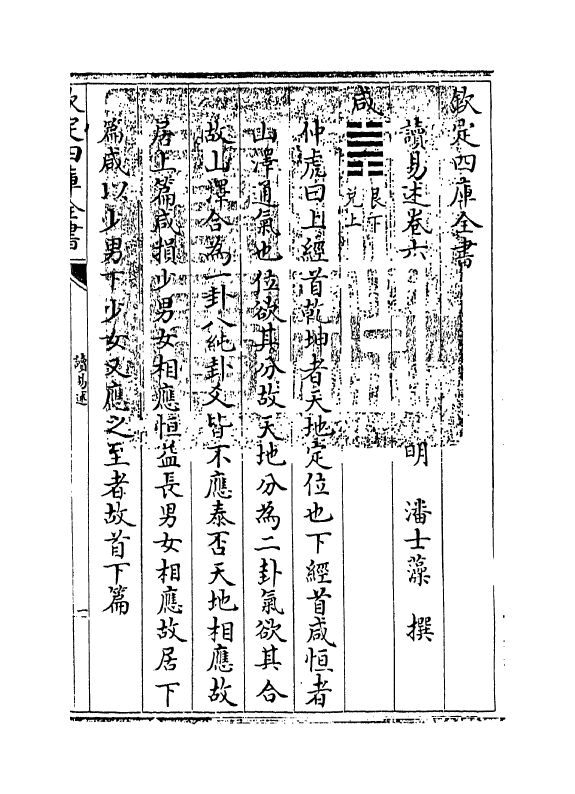 欽定四庫全書
讀易述卷六
明 潘士藻 撰
咸 艮下
兌上
仲虎曰上經首乾坤者天地定位也下經首咸恒者
山澤通氣也位欲其分故天地分為二卦氣欲其合
故山澤合為一卦八純卦爻皆不應泰否天地相應故
居上篇咸損少男女相應恒益長男女相應故居下
篇咸以少男下少女又應之至者故首下篇
欽定四庫全書
讀易述
一